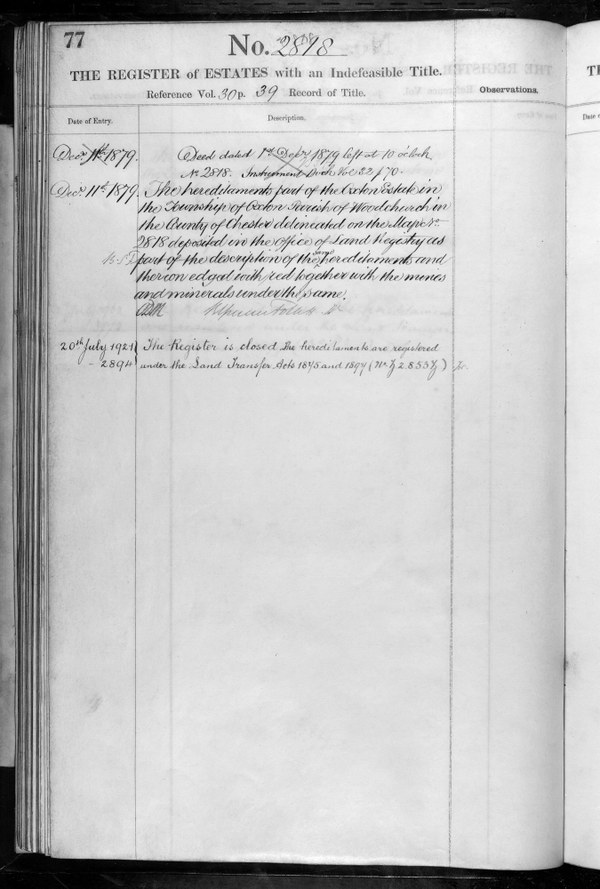 77
No. 2818
THE REGISTER of ESTATES with an Indefeasible Title.
Reference Vol. 30 p. 39 Record of Title.
Observations.
Date of Entry.
Description.
Decr. 11th 1879.
Deed dated 1st Decr. 1879 left at 10 o'clock.
No. 2818. Instrument Book Vol 22 f 70.
Decr. 11th 1879.
The hereditaments part of the Oxton Estate in
the Township of Oxton Parish of Woodchurch in
the County of Chester delineated on the Map No.
2818 deposited in the Office of Land Registry as
part of the description of the same hereditaments and
thereon edged with red together with the mines
and minerals under the same.
20th July 1921
The Register is closed the hereditaments are registered
2894
under the Land Transfer Acts 1875 and 1897